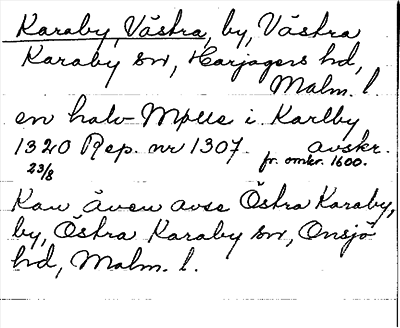 Karaby, Västra, by, Västra
Karaby sn, Harjagers hd,
Malm. l
en halv Mølle i Karlby
1320 Rep. nr 1307. avskr.
23/8 fr. omkr. 1600.
Kan även avse Östra Karaby,
by, Östra Karaby sn, Onsjö
hd, Malm. l.